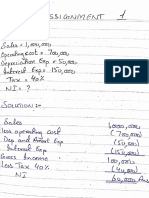 ASSIGNMENT 1
Sales = 1,000,000
Operating cost = 700,000
Depreciation Exp = 50,000
Interest Exp = 150,000
Tax = 40%
NI = ?
Solution:-
Sales 1000,000
less operating cost (700,000)
Dep and Amort Exp (50,000)
Interest Exp (150,000)
Gross Income 100,000
Less Tax 40% (40,000)
NI 60,000 Ans